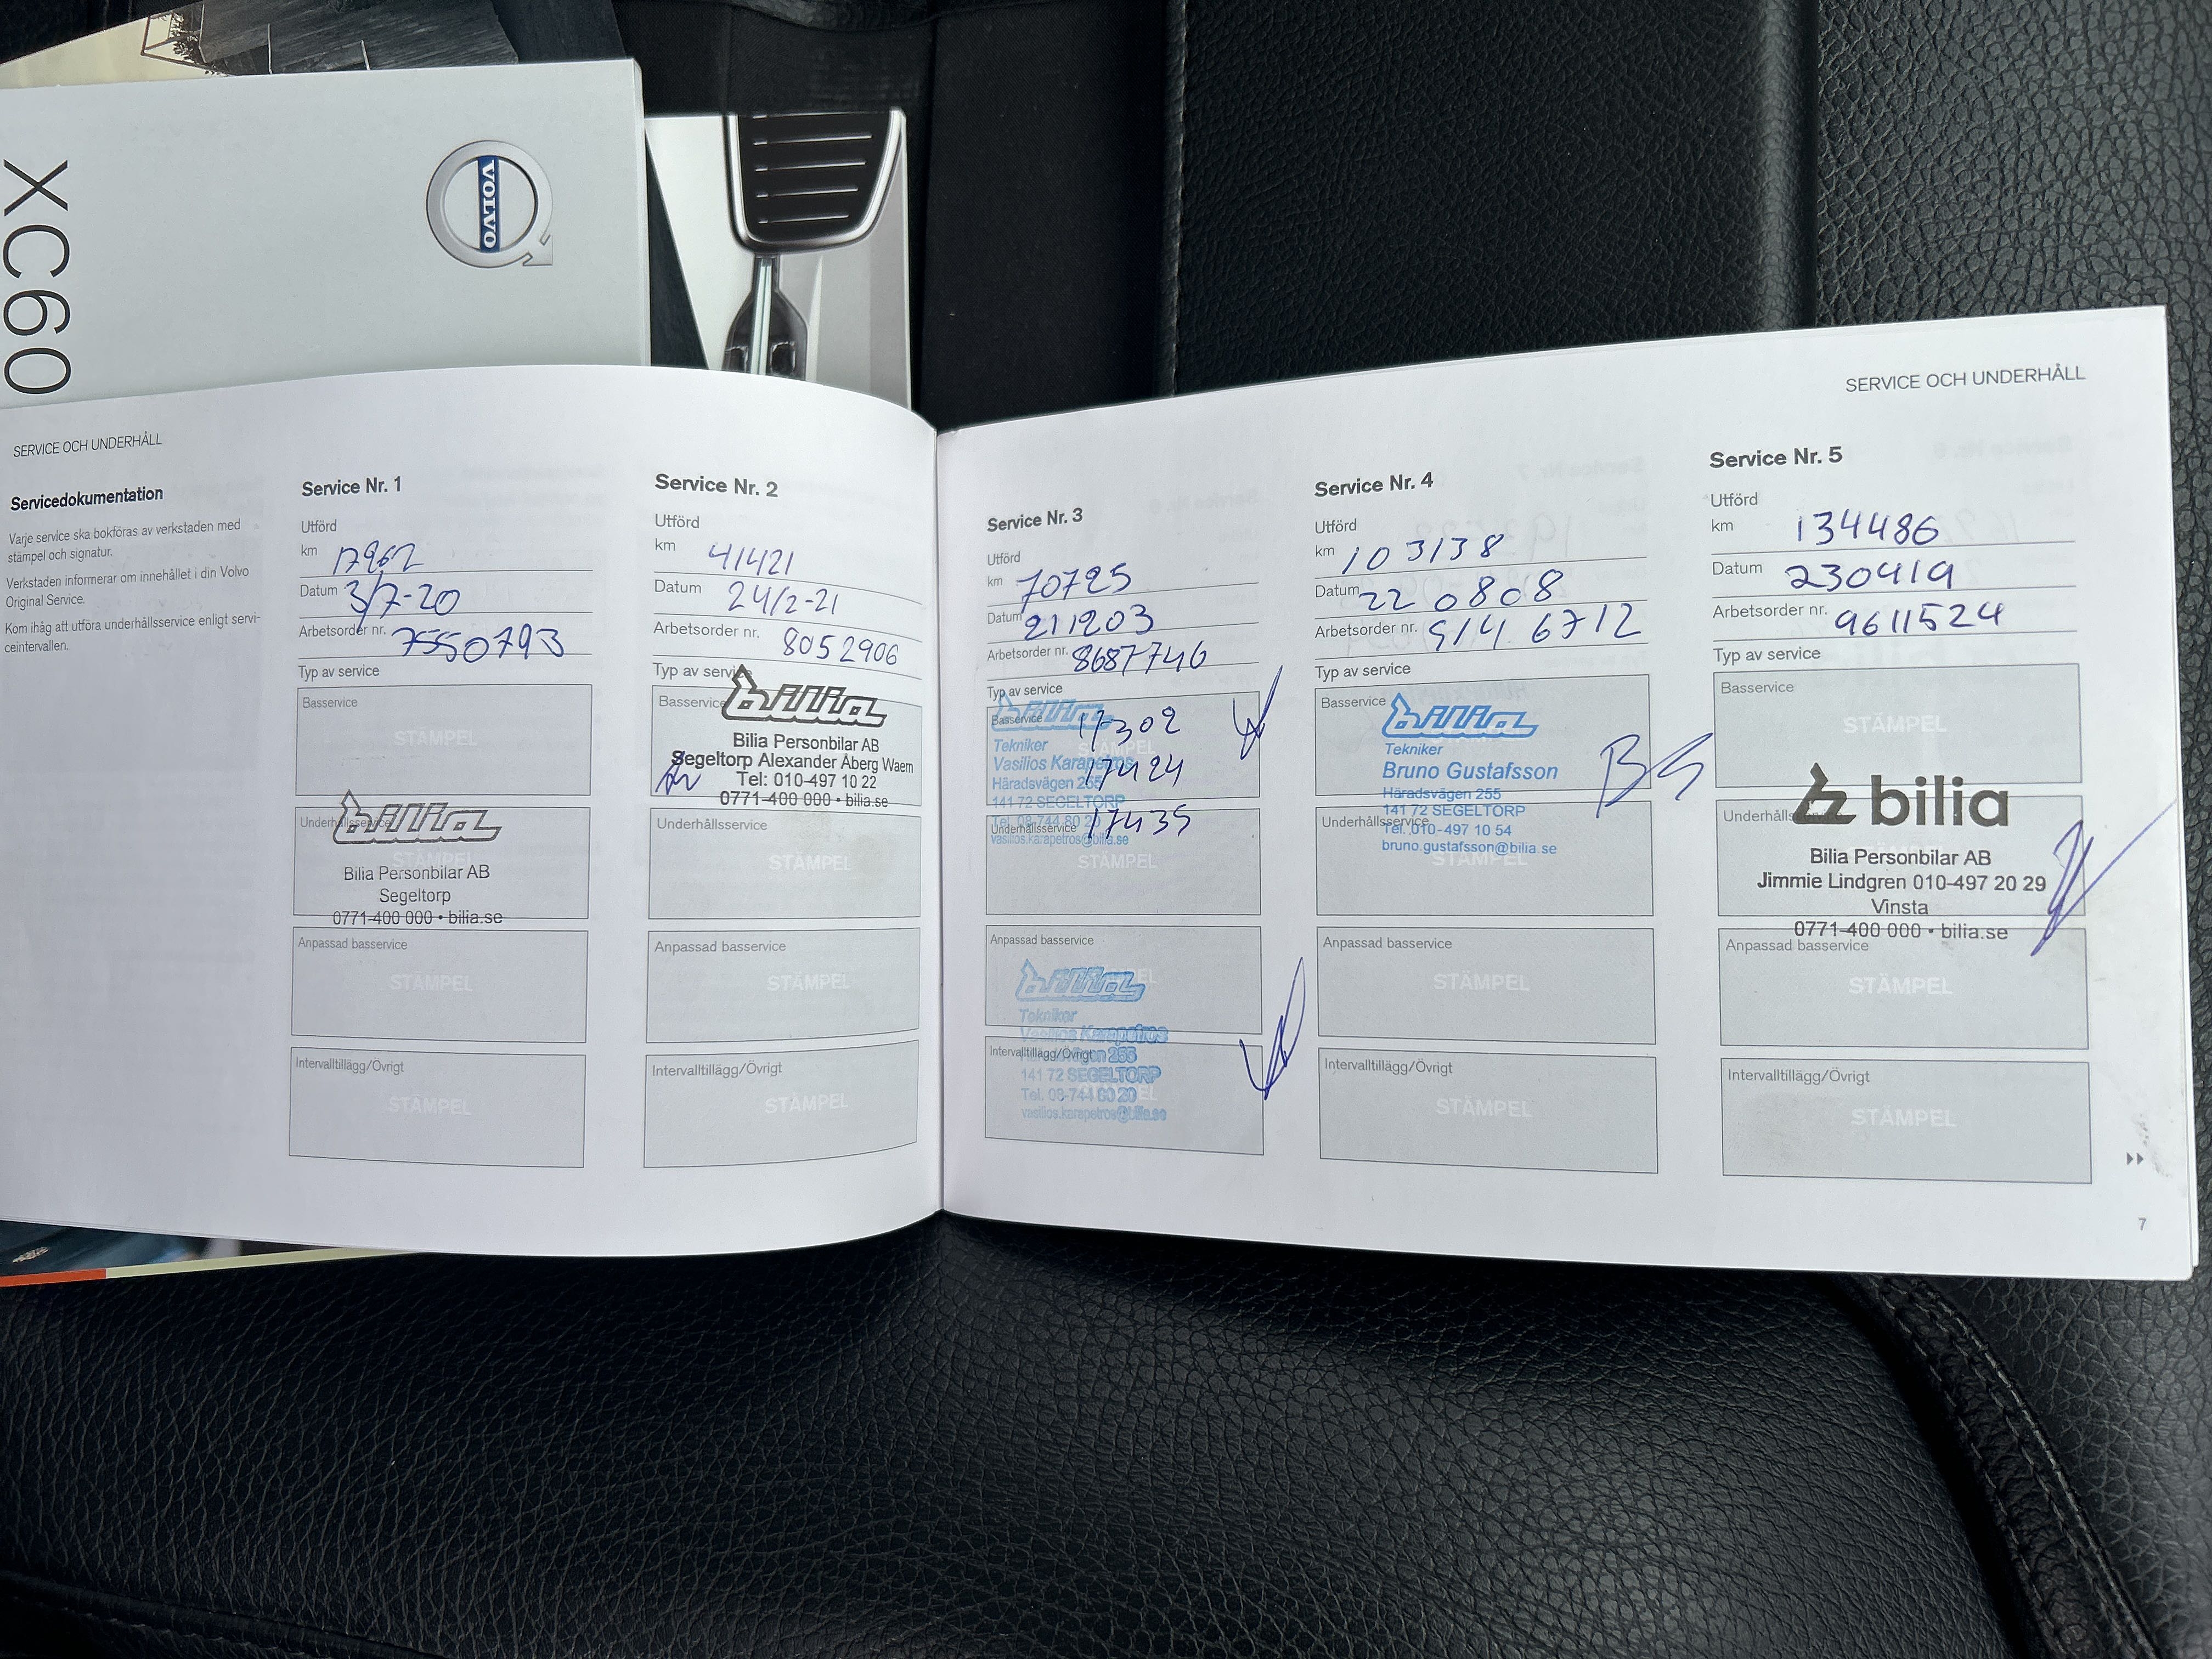 XC60
VOLVO
SERVICE OCH UNDERHÅLL
Servicedokumentation
Varje service ska bokföras av verkstaden med
stämpel och signatur.
Verkstaden informerar om innehållet i din Volvo
Original Service.
Kom ihåg att utföra underhållsservice enligt servi-
ceintervallen.
Service Nr. 1
Utförd
km 17962
Datum 3/7-20
Arbetsorder nr. 7550793
Typ av service
Basservice
STÄMPEL
Underhållsservice
bilia
STÄMPEL
Bilia Personbilar AB
Segeltorp
0771-400 000 • bilia.se
Anpassad basservice
STÄMPEL
Intervalltillägg/Övrigt
STÄMPEL
Service Nr. 2
Utförd
km 41421
Datum 24/2-21
Arbetsorder nr. 8052906
Typ av service
Basservice
bilia
Bilia Personbilar AB
Segeltorp Alexander Åberg Waem
Tel: 010-497 10 22
0771-400 000 • bilia.se
Underhållsservice
STÄMPEL
Anpassad basservice
STÄMPEL
Intervalltillägg/Övrigt
STÄMPEL
SERVICE OCH UNDERHÅLL
Service Nr. 3
Utförd
km 70725
Datum 211203
Arbetsorder nr. 8687746
Typ av service
bilia
Basservice 17302
STÄMPEL
Tekniker
Vasilios Karapetros
17424
Häradsvägen 255
141 72 SEGELTORP
Underhållsservice 17435
vasilios.karapetros@bilia.se
STÄMPEL
Anpassad basservice
bilia
Tekniker
Vasilios Karapetros
Intervalltillägg/Övrigt
255
141 72 SEGELTORP
Tel. 08-744 80 20
vasilios.karapetros@bilia.se
Service Nr. 4
Utförd
km 103138
Datum 220808
Arbetsorder nr. 9146712
Typ av service
Basservice
bilia
Tekniker
Bruno Gustafsson
BG
Häradsvägen 255
141 72 SEGELTORP
Underhållsservice
Tel. 010-497 10 54
bruno.gustafsson@bilia.se
STÄMPEL
Anpassad basservice
STÄMPEL
Intervalltillägg/Övrigt
STÄMPEL
Service Nr. 5
Utförd
km 134486
Datum 230419
Arbetsorder nr. 9611524
Typ av service
Basservice
STÄMPEL
bilia
Bilia Personbilar AB
Jimmie Lindgren 010-497 20 29
Vinsta
0771-400 000 • bilia.se
Anpassad basservice
STÄMPEL
Intervalltillägg/Övrigt
STÄMPEL
7